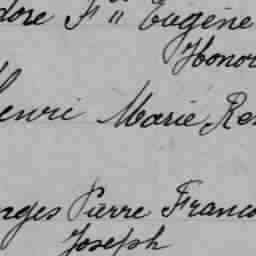 dore Fii Eugène
Honor
Henri Marie Re
nges Pierre Franco
Joseph